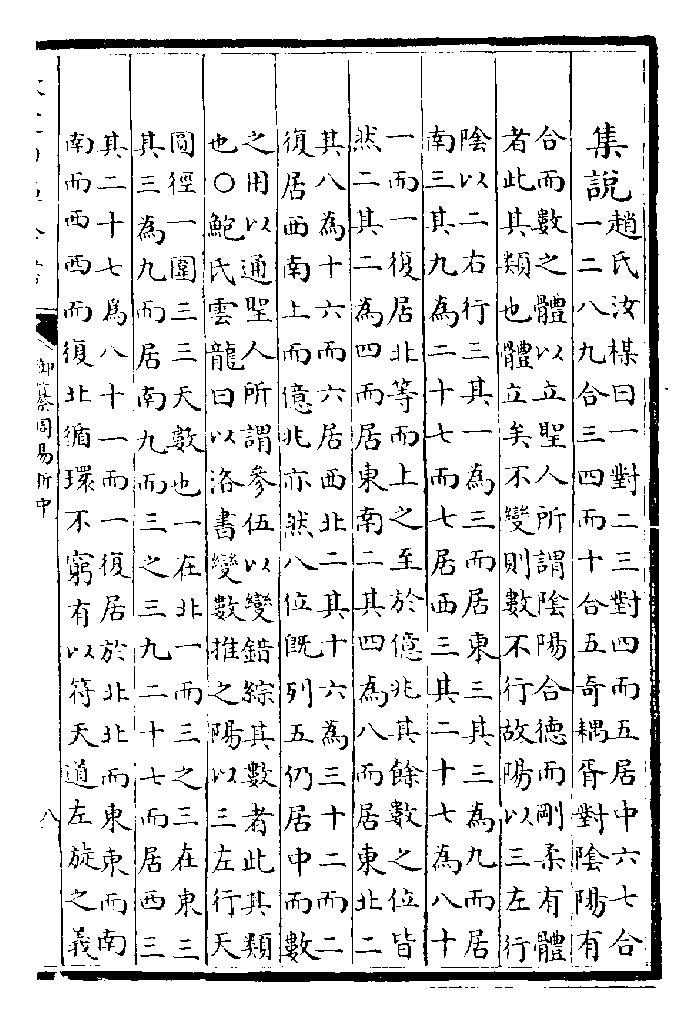 集說趙氏汝楳曰一對二三對四而五居中六七合
一二八九合三四而十合五奇耦胥對陰陽有
合而數之體以立聖人所謂陰陽合德而剛柔有體
者此其類也體立矣不變則數不行故陽以三左行
陰以二右行三其一為三而居東三其三為九而居
南三其九為二十七而七居西三其二十七為八十
一而一復居北等而上之至於億兆其餘數之位皆
然二其二為四而居東南二其四為八而居東北二
其八為十六而六居西北二其十六為三十二而二
復居西南上而億兆亦然八位既列五仍居中而數
之用以通聖人所謂參伍以變錯綜其數者此其類
也○鮑氏雲龍曰以洛書變數推之陽以三左行天
圓徑一圍三三天數也一在北一而三之三在東三
其三為九而居南九而三之三九二十七而居西三
其二十七為八十一而一復居於北北而東東而南
南而西西而復北循環不窮有以符天道左旋之義
御纂周易折中
八